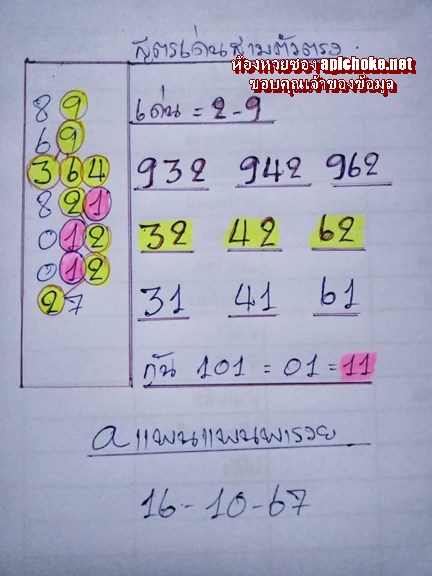 สูตรเด่นสามตัวตรง
ห้องหวยซอง apichoke.net
ขอบคุณเจ้าของข้อมูล
89
69
364
821
012
012
27
เด่น = 2-9
932 942 962
32 42 62
31 41 61
กัน 101 = 01 = 11
aแพนแพนพารวย
16-10-67